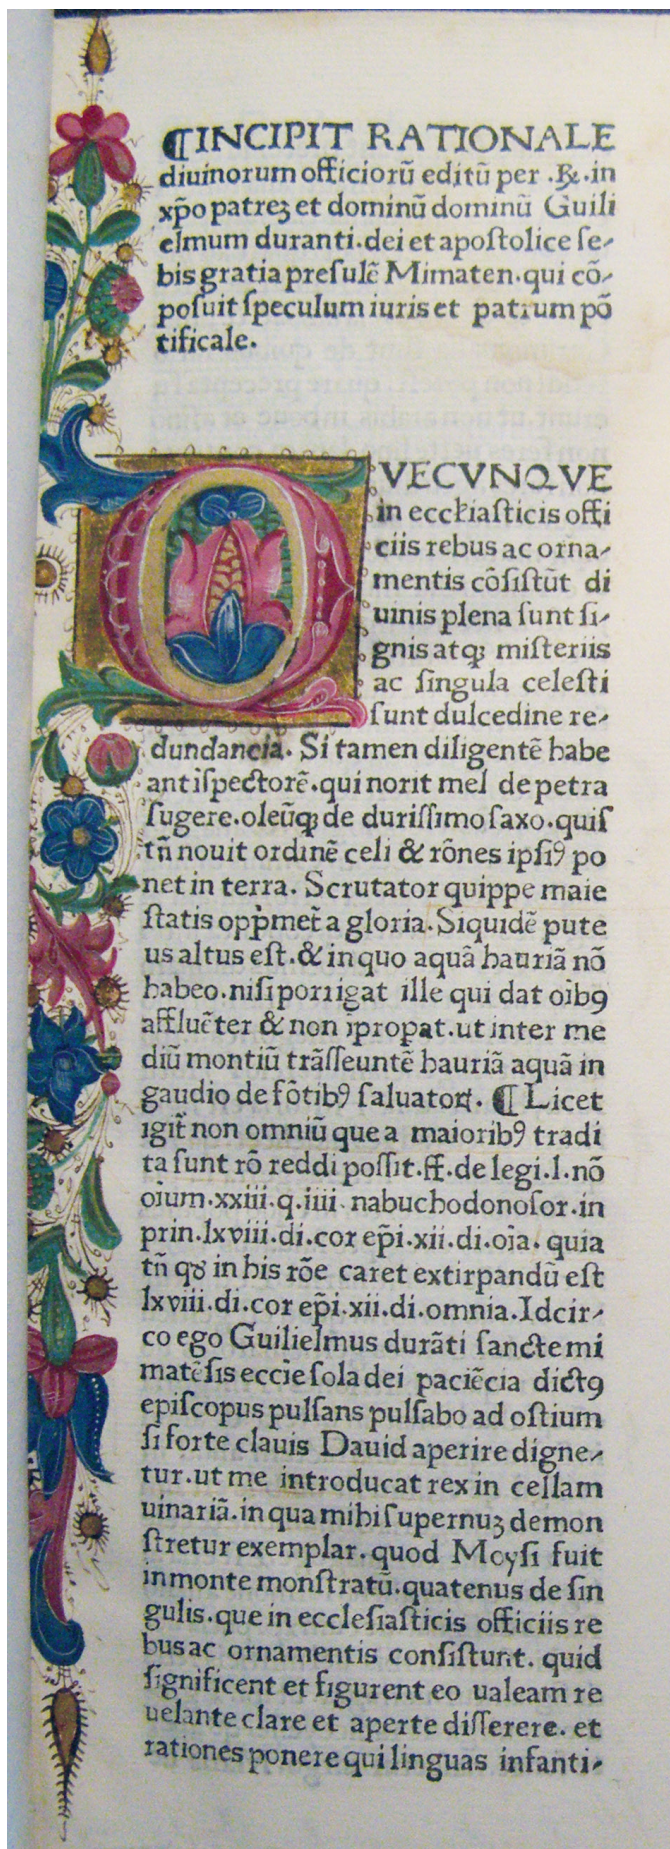 ¶INCIPIT RATIONALE
diuinorum officiorū editū per .R̃.in
xp̄o patreʒ et dominū dominū Guili
elmum duranti.dei et apoſtolice ſe-
bis gratia preſulē Mimaten.qui cō-
poſuit ſpeculum iuris et patrum pō
tificale.
QVECVNQVE
in eccłiaſticis offi
ciis rebus ac orna-
mentis cōſiſtūt di
uinis plena ſunt ſi-
gnis atqꝫ miſteriis
ac ſingula celeſti
ſunt dulcedine re-
dundancia. Si tamen diligentē habe
ant iſpectorē.qui norit mel de petra
ſugere.oleūqꝫ de duriſſimo ſaxo.quiſ
tñ nouit ordinē celi & rōnes ipſiꝰ po
net in terra. Scrutator quippe maie
ſtatis opp̄met̃ a gloria. Siquidē pute
us altus eſt.& in quo aquā hauriā nō
habeo.niſi porrigat ille qui dat oībꝰ
affluēter & non īpropat.ut inter me
diū montiū trāſſeuntē hauriā aquā in
gaudio de fōtibꝰ ſaluatoꝝ. ¶ Licet
igit̃ non omniū que a maioribꝰ tradi
ta ſunt rō reddi poſſit.ff.de legi.l.nō
oīum.xxiii.q.iiii.nabuchodonoſor.in
prin.lxviii.di.cor ep̄i.xii.di.oīa. quia
tñ qꝺ in his rōe caret extirpandū eſt
lxviii.di.cor ep̄i.xii.di.omnia.Idcir-
co ego Guilielmus durāti ſancte mi
matēſis eccīe ſola dei paciēcia dictꝰ
epiſcopus pulſans pulſabo ad oſtium
ſi forte clauis Dauid aperire digne-
tur.ut me introducat rex in cellam
uinariā.in qua mihi ſupernuʒ demon
ſtretur exemplar. quod Moyſi fuit
in monte monſtratū.quatenus de ſin
gulis.que in eccleſiaſticis officiis re
bus ac ornamentis conſiſtunt. quid
ſignificent et figurent eo ualeam re
uelante clare et aperte diſſerere. et
rationes ponere qui linguas infanti-